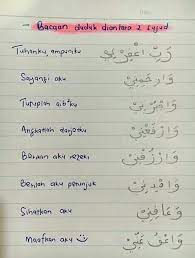 Bacaan duduk diantara 2 sujud
Tuhanku ampuniku رَبِّ اغْفِرْلِيْ
Sayangi aku وَارْحَمْنِيْ
Tutuplah aibku وَاجْبُرْنِيْ
Angkatlah darjatku وَارْفَعْنِيْ
Berikan aku rezeki وَارْزُقْنِيْ
Berikan aku petunjuk وَاهْدِنِيْ
Sihatkan aku وَعَافِنِيْ
Maafkan aku وَاعْفُ عَنِّيْ